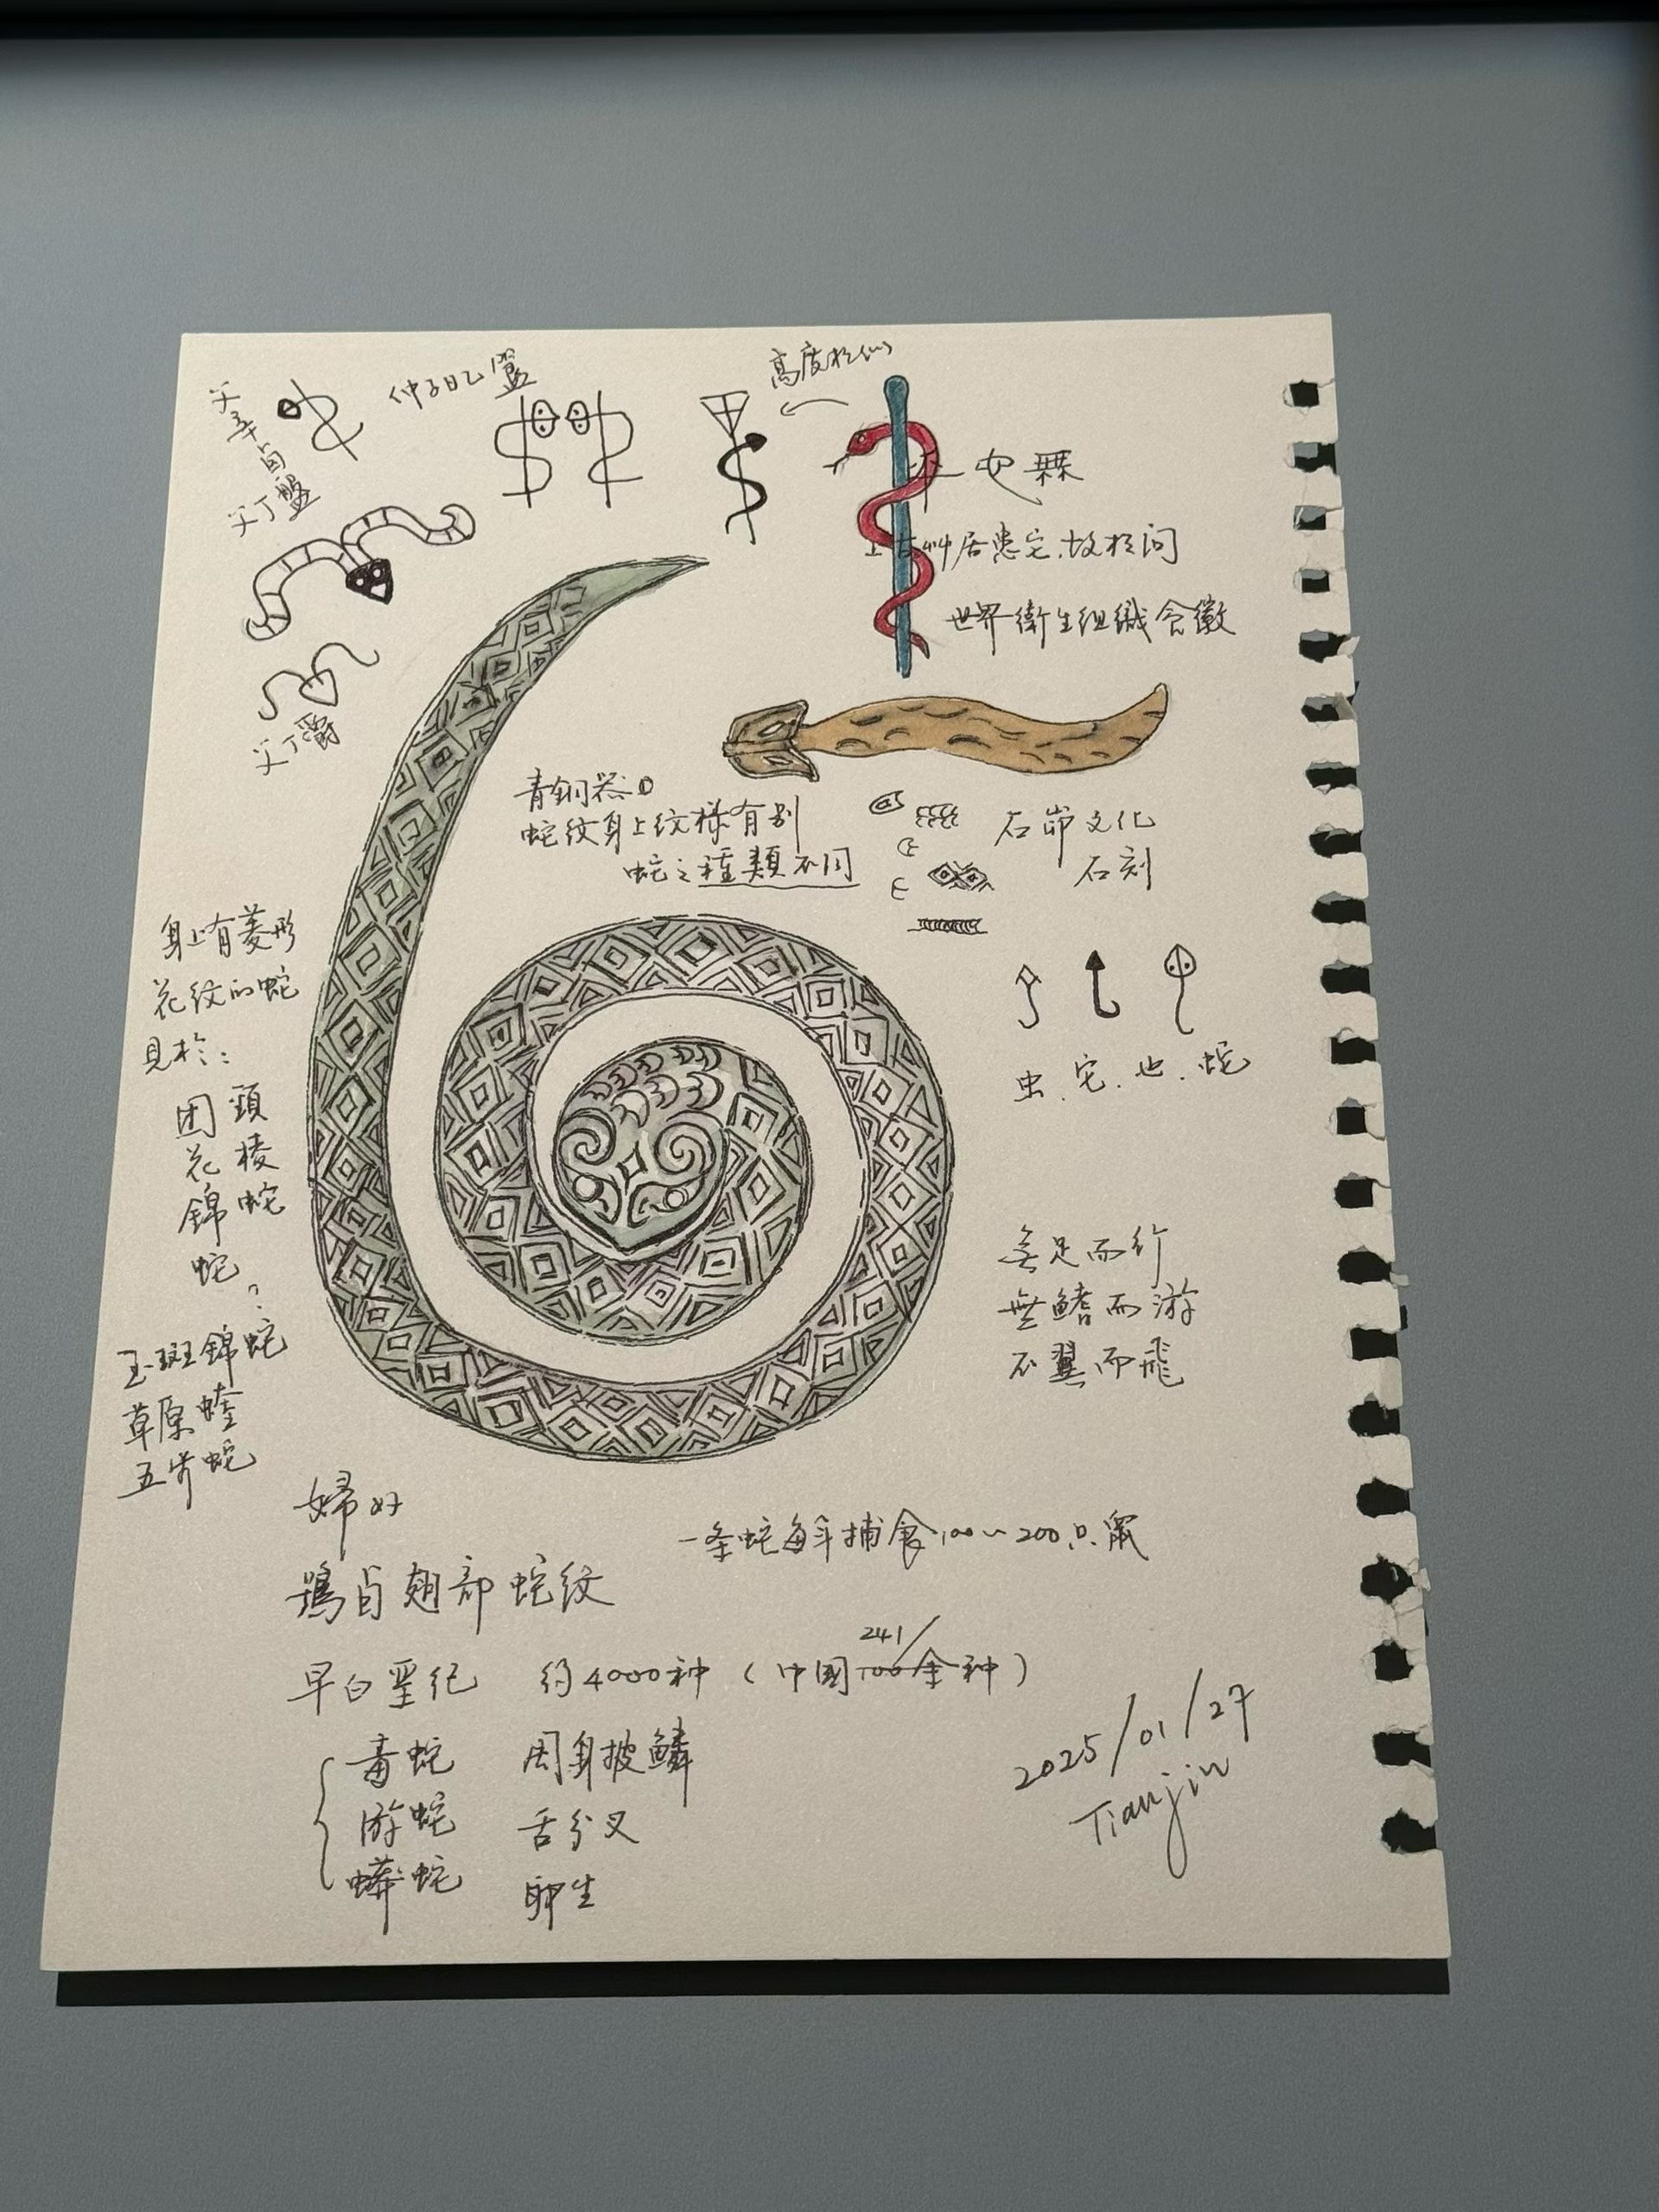 高度相似
仲子日乙簋
父辛卣
父丁盤
父丁爵
也無
上古艸居患它,故相问
世界衛生組織会徽
青铜器
蛇纹身上纹様有别
蛇之種類不同
石峁文化
石刻
虫.它.也.蛇
身上有菱形
花纹的蛇
見於:
頸棱蛇
团花錦蛇?
玉斑錦蛇
草原蝰
五步蛇
無足而行
無鳍而游
不翼而飛
婦好
鴞卣翅部蛇纹
一条蛇每年捕食100~200只鼠
早白垩纪 约4000种(中國241/100余种)
毒蛇 周身披鳞
游蛇 舌分叉
蟒蛇 卵生
2025/01/27
Tianjin